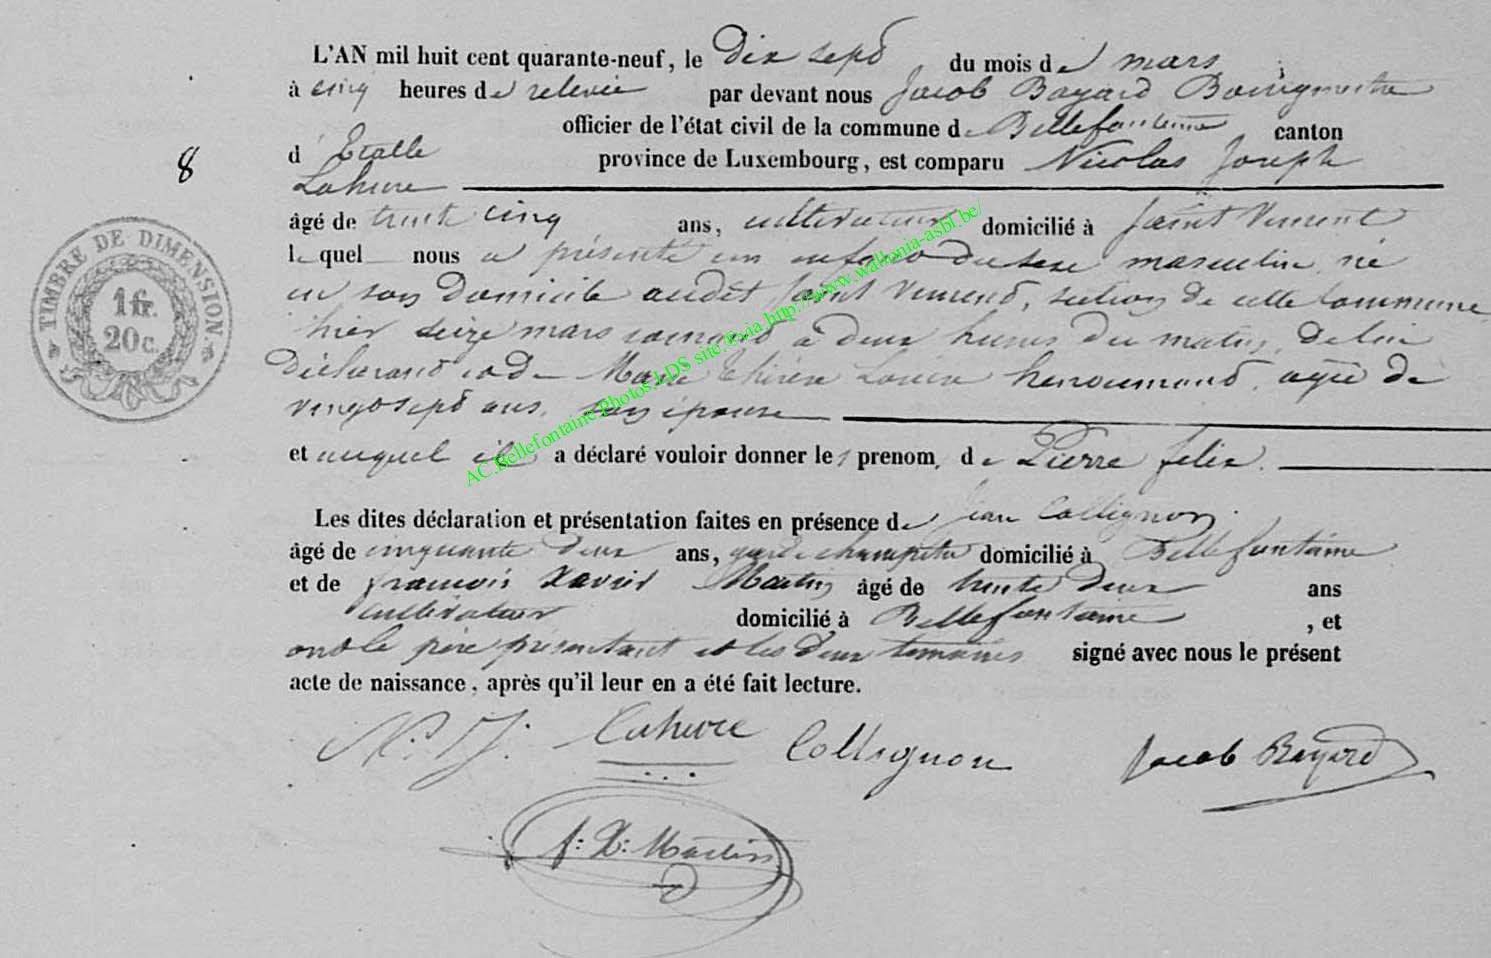 L'AN mil huit cent quarante-neuf, le Dix sept du mois de mars
à cinq heures de relevée par devant nous Jacob Bayard Bourgmestre
officier de l'état civil de la commune de Bellefontaine canton
d'Etalle province de Luxembourg, est comparu Nicolas Joseph
8
Lahure
âgé de trente cinq ans, cultivateur domicilié à Saint Vincent
lequel nous a présenté un enfant du sexe masculin né
en son Domicile audit Saint Vincent, section de cette Commune
hier seize mars courant à deux heures du matin, de lui
Déclarant et de Marie Thérèse Louise henoumont, agée de
vingt sept ans, son épouse
et auquel il a déclaré vouloir donner les prenom, de Pierre felix.
Les dites déclaration et présentation faites en présence de Jean Collignon
âgé de cinquante deux ans, garde champetre domicilié à Bellefontaine
et de françois Xavier Martin âgé de trente deux ans
cultivateur domicilié à Bellefontaine, et
ont le père présentant et les deux temoins signé avec nous le présent
acte de naissance, après qu'il leur en a été fait lecture.
N. J. Lahure Collignon Jacob Bayard
f: X: Martin
TIMBRE DE DIMENSION.
1 fr.
20 c.
AC.Bellefontaine Photos LDS site.be via http://www.wallonia-asbl.be/